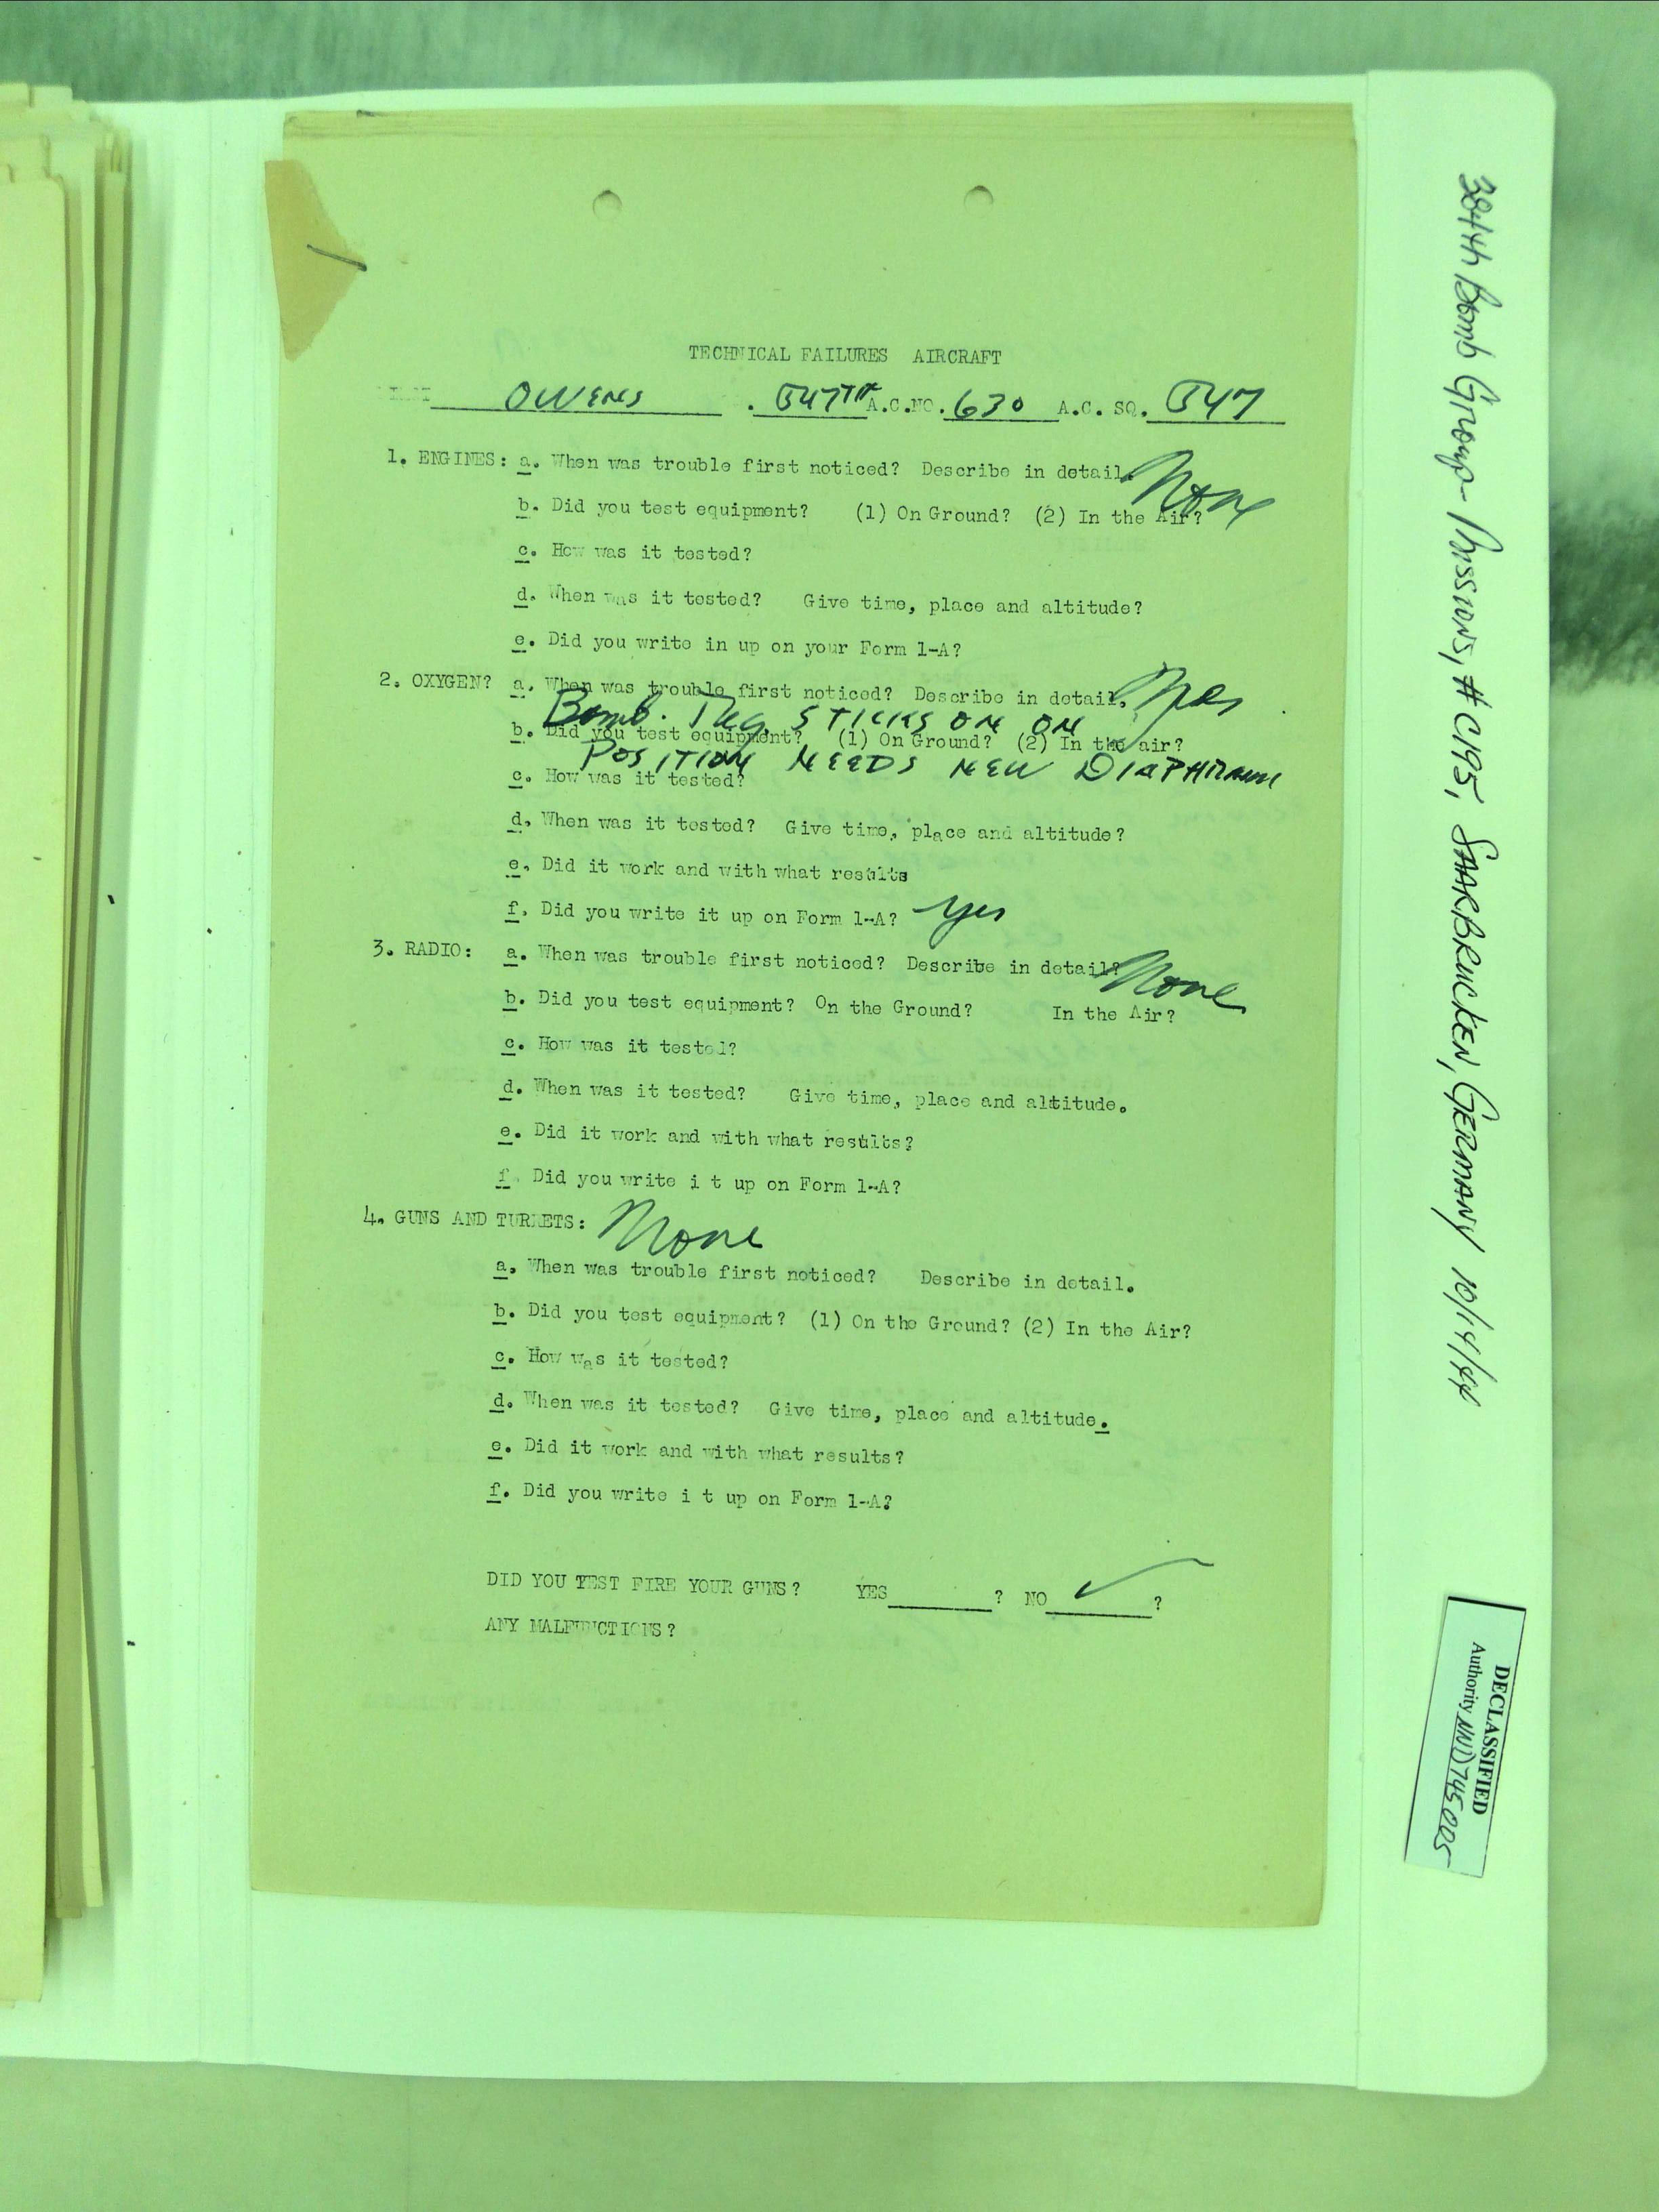 TECHNICAL FAILURES AIRCRAFT
OWENS . 547TH A.C.NO. 630 A.C. SQ. 547
1. ENGINES: a. When was trouble first noticed? Describe in detail. None
b. Did you test equipment? (1) On Ground? (2) In the Air?
c. How was it tested?
d. When was it tested? Give time, place and altitude?
e. Did you write in up on your Form 1-A?
2. OXYGEN? a. When was trouble first noticed? Describe in detail. Yes
Bomb. Reg. STICKS ON ON
b. Did you test equipment? (1) On Ground? (2) In the air?
POSITION NEEDS NEW DIAPHRAM
c. How was it tested?
d. When was it tested? Give time, place and altitude?
e. Did it work and with what results
f. Did you write it up on Form 1-A? Yes
3. RADIO: a. When was trouble first noticed? Describe in detail? None
b. Did you test equipment? On the Ground? In the Air?
c. How was it tested?
d. When was it tested? Give time, place and altitude.
e. Did it work and with what results?
f. Did you write i t up on Form 1-A?
4. GUNS AND TURRETS: None
a. When was trouble first noticed? Describe in detail.
b. Did you test equipment? (1) On the Ground? (2) In the Air?
c. How was it tested?
d. When was it tested? Give time, place and altitude.
e. Did it work and with what results?
f. Did you write i t up on Form 1-A?
DID YOU TEST FIRE YOUR GUNS? YES ? NO ✓ ?
ANY MALFUNCTIONS?
384th Bomb Group - Missions, # C195, SAARBRUCKEN, GERMANY 10/14/44
DECLASSIFIED
Authority NND745005